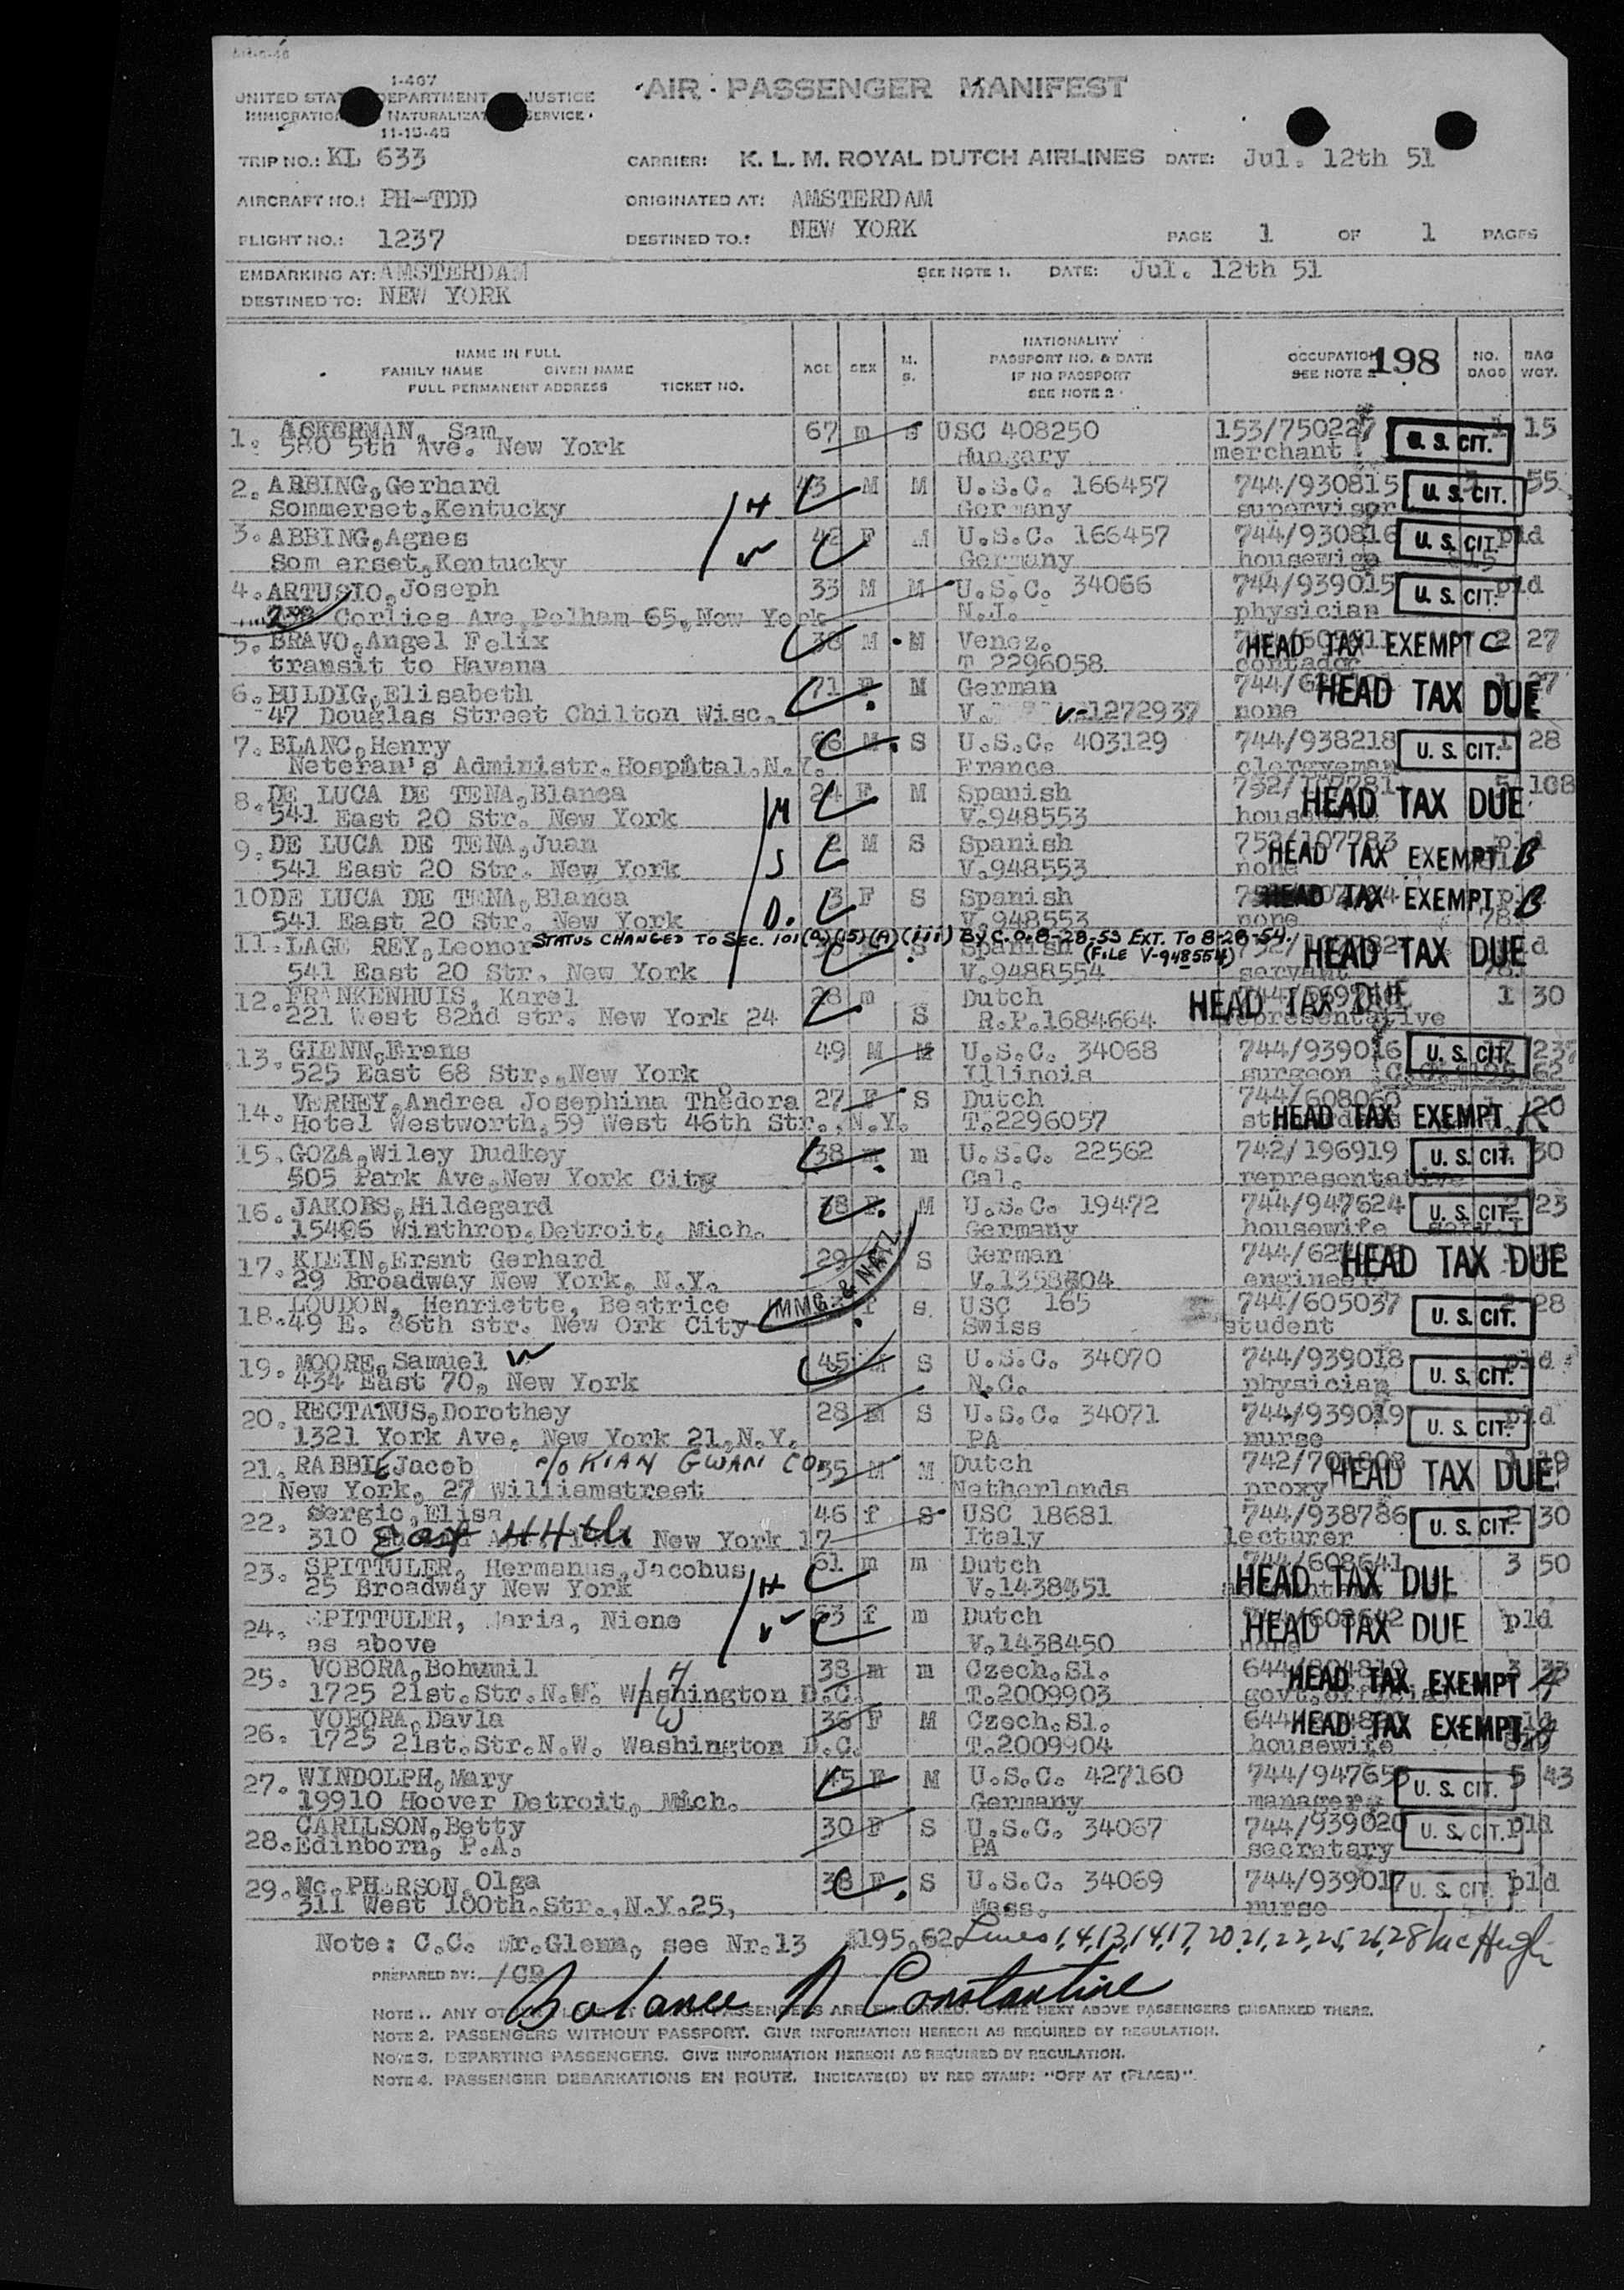 I-467
UNITED STATES DEPARTMENT OF JUSTICE
IMMIGRATION NATURALIZATION SERVICE
11-15-45
AIR PASSENGER MANIFEST
TRIP NO.: KL 633 CARRIER: K. L. M. ROYAL DUTCH AIRLINES DATE: Jul. 12th 51
AIRCRAFT NO.: PH-TDD ORIGINATED AT: AMSTERDAM
FLIGHT NO.: 1237 DESTINED TO.: NEW YORK PAGE 1 OF 1 PAGES
EMBARKING AT: AMSTERDAM SEE NOTE 1. DATE: Jul. 12th 51
DESTINED TO: NEW YORK
NAME IN FULL
FAMILY NAME GIVEN NAME
FULL PERMANENT ADDRESS TICKET NO.
AGE SEX M. S.
NATIONALITY
PASSPORT NO. & DATE
IF NO PASSPORT
SEE NOTE 2
OCCUPATION 198
SEE NOTE 2
NO. BAGS
BAG WGT.
1. ACKERMAN, Sam 67 m s USC 408250 153/750227 U. S. CIT. 1 15
580 5th Ave. New York Hungary merchant
2. ABBING,Gerhard H 43 M M U.S.C. 166457 744/930815 U. S. CIT. 55
Sommerset,Kentucky Germany supervisor
3. ABBING,Agnes W 42 F M U.S.C. 166457 744/930816 U. S. CIT. pld
Som erset,Kentucky Germany housewife
4. ARTUSIO,Joseph 33 M M U.S.C. 34066 744/939015 U. S. CIT. pld
Corlies Ave,Pelham 65,New York N.J. physician
5. BRAVO,Angel Felix 38 M M Venez. HEAD TAX EXEMPT C 2 27
transit to Havana T 2296058 contador
6. BULDIG,Elisabeth 71 F M German HEAD TAX DUE 27
47 Douglas Street Chilton Wisc. V-1272937 none
7. BLANC,Henry 66 M S U.S.C. 403129 744/938218 U. S. CIT. 1 28
Neteran's Administr.Hospital,N.Y. France clergyman
8. DE LUCA DE TENA,Blanca M 24 F M Spanish HEAD TAX DUE 5 108
541 East 20 Str. New York V.948553
9. DE LUCA DE TENA,Juan S 2 M S Spanish 752/107783 HEAD TAX EXEMPT B
541 East 20 Str. New York V.948553 none
10 DE LUCA DE TENA,Blanca D. 3 F S Spanish HEAD TAX EXEMPT B
541 East 20 Str. New York V.948553 none
11. LAGE REY,Leonor STATUS CHANGED TO SEC. 101(a)(15)(A)(iii) BY C.O. 8-28-53 EXT. TO 8-28-54. (FILE V-948554) S Spanish HEAD TAX DUE
541 East 20 Str. New York V.9488554 servant
12. FRANKENHUIS, Karel 28 m S Dutch HEAD TAX DUE 1 30
221 West 82nd str. New York 24 R.P.1684664 representative
13. GLENN,Frans 49 M M U.S.C. 34068 744/939016 U. S. CIT. 17 237
525 East 68 Str.,New York Illinois surgeon C.C. $195,62
14. VERHEY,Andrea Josephina Thedora 27 F S Dutch 744/608060 HEAD TAX EXEMPT 20
Hotel Westworth,59 West 46th Str.,N.Y. T.2296057
15. GOZA,Wiley Dudkey 38 m m U.S.C. 22562 742/196919 U. S. CIT. 30
505 Park Ave,New York City Cal. representative
16. JAKOBS,Hildegard 38 F M U.S.C. 19472 744/947624 U. S. CIT. 2 23
15406 Winthrop,Detroit, Mich. Germany housewife
17. KLEIN,Ersnt Gerhard 29 S German HEAD TAX DUE
29 Broadway New York, N.Y. V.1358604 engineer
IMMG. & NATZ.
18. LOUDON, Henriette, Beatrice f s. USC 165 744/605037 U. S. CIT. 28
49 E. 86th str. New Ork City Swiss student
19. MOORE,Samuel 45 M S U.S.C. 34070 744/939018 U. S. CIT. pld
434 East 70, New York N.C. physician
20. RECTANUS,Dorothey 28 M S U.S.C. 34071 744/939019 U. S. CIT. pld
1321 York Ave. New York 21,N.Y. PA nurse
21. RABBIE,Jacob c/o KIAN GWAN CO. 35 M M Dutch HEAD TAX DUE
New York, 27 Williamstreet Netherlands proxy
22. Sergio,Elisa 46 f S USC 18681 744/938786 U. S. CIT. 2 30
310 East 44th New York 17 Italy lecturer
23. SPITTULER, Hermanus,Jacobus H 61 m m Dutch 744/608641 HEAD TAX DUE 3 50
25 Broadway New York V.1438451
24. SPITTULER, Maria, Niene W 63 f m Dutch HEAD TAX DUE pld
as above V.1438450 none
25. VOBORA,Bohumil H 38 m m Czech.Sl. HEAD TAX EXEMPT 3 33
1725 21st.Str.N.W. Washington D.C. T.2009903 govt.official
26. VOBORA,Davla W 36 F M Czech.Sl. HEAD TAX EXEMPT
1725 21st.Str.N.W. Washington D.C. T.2009904 housewife
27. WINDOLPH,Mary 45 F M U.S.C. 427160 744/947655 U. S. CIT. 5 43
19910 Hoover Detroit, Mich. Germany manager
28. CARLLSON,Betty 30 F S U.S.C. 34067 744/939020 U. S. CIT. pld
Edinborn, P.A. PA secretary
29. Mc.PHERSON,Olga 38 F S U.S.C. 34069 744/939017 U. S. CIT. pld
311 West 100th.Str.,N.Y.25, Mass. nurse
Note: C.C. Mr.Glenn, see Nr.13 $195,62 Lines 1,4,13,14,17,20,21,22,25,26,28 McHugh
PREPARED BY: /CR
Balance N Constantine
NOTE 1. ANY OTHER PASSENGERS ARE NEXT ABOVE PASSENGERS EMBARKED THERE.
NOTE 2. PASSENGERS WITHOUT PASSPORT. GIVE INFORMATION HEREON AS REQUIRED BY REGULATION.
NOTE 3. DEPARTING PASSENGERS. GIVE INFORMATION HEREON AS REQUIRED BY REGULATION.
NOTE 4. PASSENGER DEBARKATIONS EN ROUTE. INDICATE(D) BY RED STAMP: "OFF AT (PLACE)".